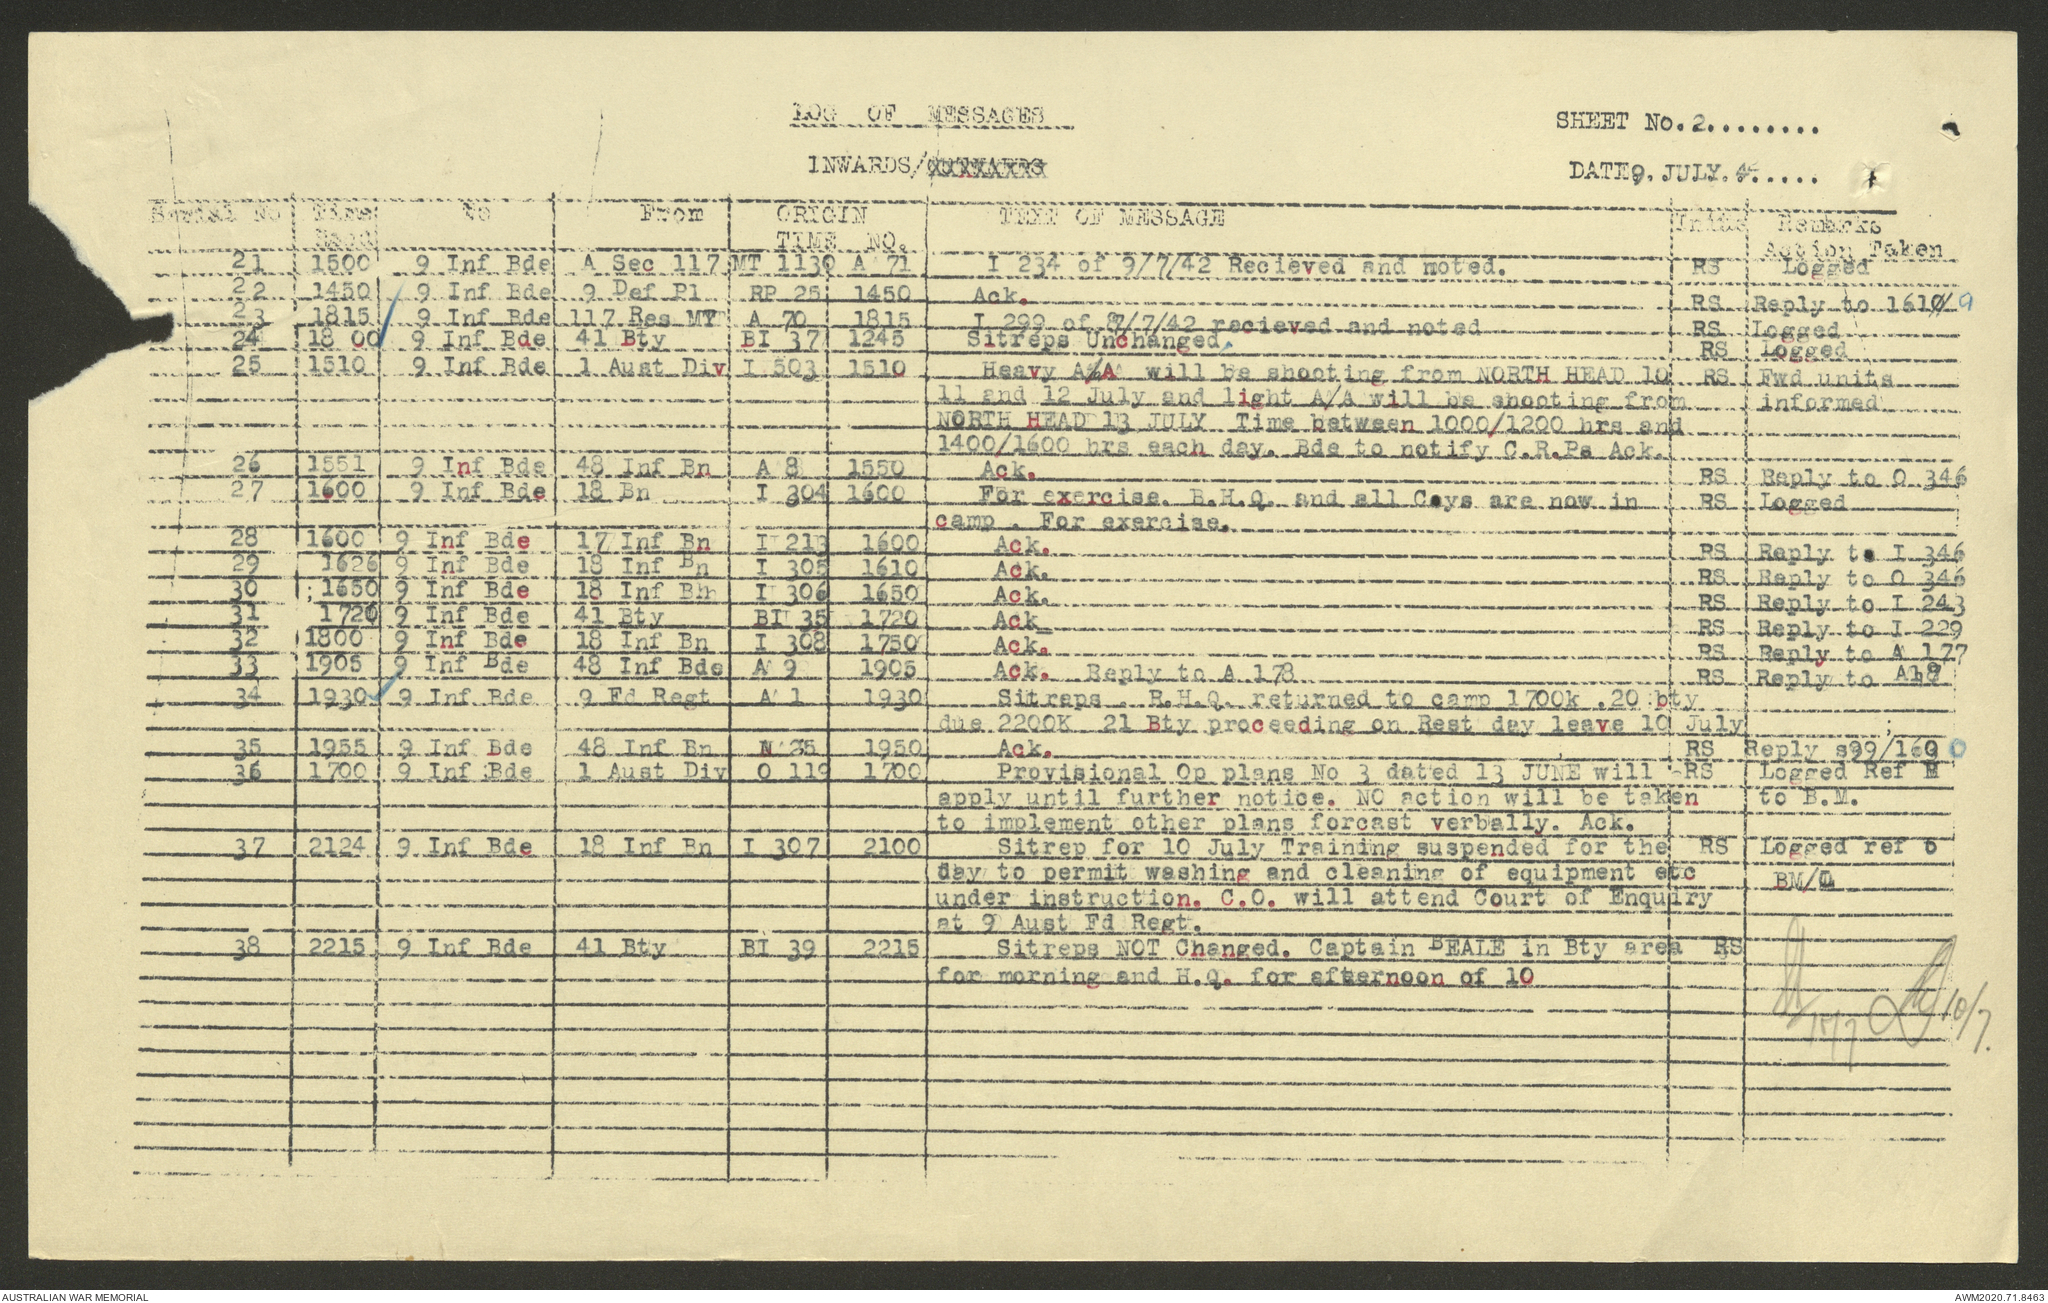 LOG OF MESSAGES
SHEET No.2.........
INWARDS/OUTWARDS
DATE 9. JULY. 4......
Serial No Time To From ORIGIN TEXT OF MESSAGE Initls Remarks
TIME NO. Action Taken
21 1500 9 Inf Bde A Sec 117 MT 1130 A 71 I 234 of 9/7/42 Recieved and noted. RS Logged
22 1450 9 Inf Bde 9 Def Pl RP 25 1450 Ack. RS Reply to 1610/9
23 1815 9 Inf Bde 117 Res MT A 70 1815 I 299 of 8/7/42 recieved and noted RS Logged
24 18 00 9 Inf Bde 41 Bty BI 37 1245 Sitreps Unchanged. RS Logged
25 1510 9 Inf Bde 1 Aust Div I 503 1510 Heavy A/A will be shooting from NORTH HEAD 10 RS Fwd units
11 and 12 July and light A/A will be shooting from informed
NORTH HEAD 13 JULY Time between 1000/1200 hrs and
1400/1600 hrs each day. Bde to notify C.R.Ps Ack.
26 1551 9 Inf Bde 48 Inf Bn A 8 1550 Ack. RS Reply to O 346
27 1600 9 Inf Bde 18 Bn I 304 1600 For exercise. B.H.Q. and all Coys are now in RS Logged
camp . For exercise.
28 1600 9 Inf Bde 17 Inf Bn I 213 1600 Ack. RS Reply to I 346
29 1626 9 Inf Bde 18 Inf Bn I 305 1610 Ack. RS Reply to O 346
30 1650 9 Inf Bde 18 Inf Bn I 306 1650 Ack. RS Reply to I 243
31 1720 9 Inf Bde 41 Bty BI 35 1720 Ack RS Reply to I 229
32 1800 9 Inf Bde 18 Inf Bn I 308 1750 Ack. RS Reply to A 177
33 1905 9 Inf Bde 48 Inf Bde A 9 1905 Ack. Reply to A 178 RS Reply to A178
34 1930 9 Inf Bde 9 Fd Regt A 1 1930 Sitreps . R.H.Q. returned to camp 1700k .20 bty
due 2200K 21 Bty proceeding on Rest day leave 10 July
35 1955 9 Inf Bde 48 Inf Bn N 25 1950 Ack. RS Reply s99/160 0
36 1700 9 Inf Bde 1 Aust Div O 119 1700 Provisional Op plans No 3 dated 13 JUNE will RS Logged Ref
apply until further notice. NO action will be taken to B.M.
to implement other plans forcast verbally. Ack.
37 2124 9 Inf Bde 18 Inf Bn I 307 2100 Sitrep for 10 July Training suspended for the RS Logged ref
day to permit washing and cleaning of equipment etc BM/
under instruction. C.O. will attend Court of Enquiry
at 9 Aust Fd Regt.
38 2215 9 Inf Bde 41 Bty BI 39 2215 Sitreps NOT Changed. Captain BEALE in Bty area RS
for morning and H.Q. for afternoon of 10
10/7 10/7.
AUSTRALIAN WAR MEMORIAL
AWM2020.71.8463